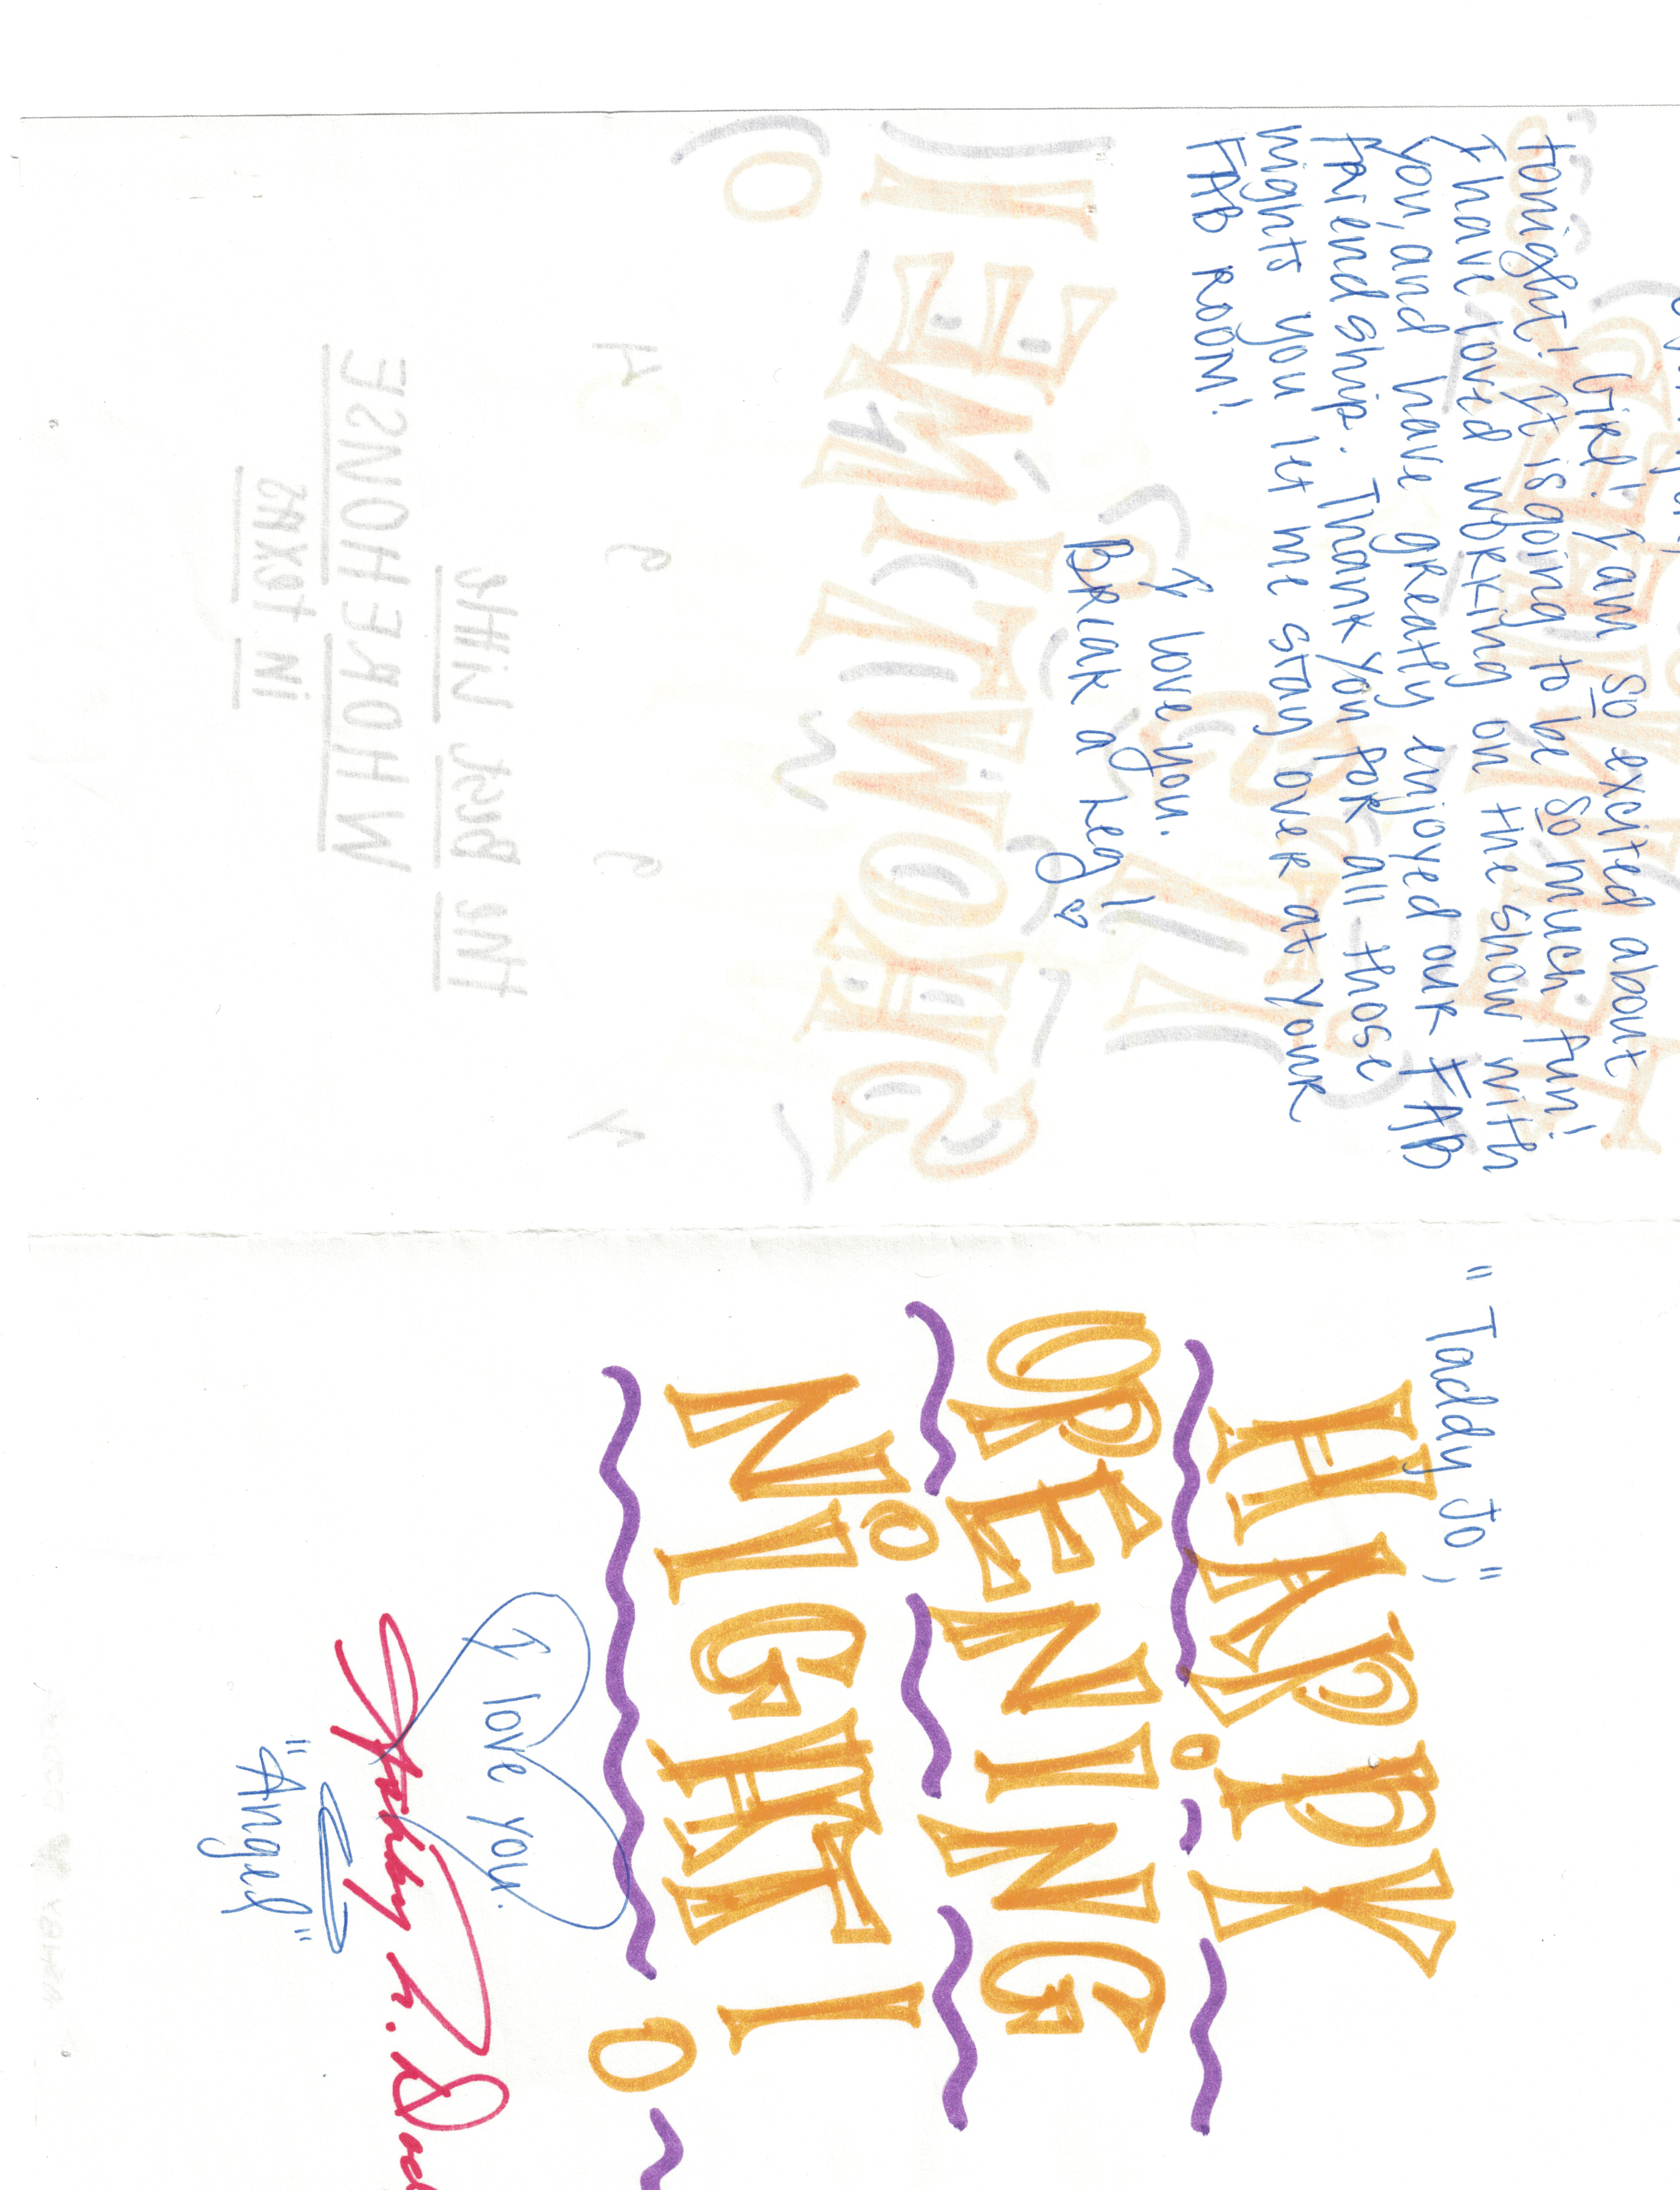 Girl! I am so excited about
tonight! It is going to be so much fun!
I have loved working on the show with
you, and have greatly enjoyed our FAB
friendship. Thank you for all those
nights you let me stay over at your
FAB room!
I love you.
Break a Leg!
SHOWTIME!!
The Best Little
WHOREHOUSE
in Texas
"Taddy Jo",
HAPPY
OPENING
NIGHT!
I love you.
"Angel"